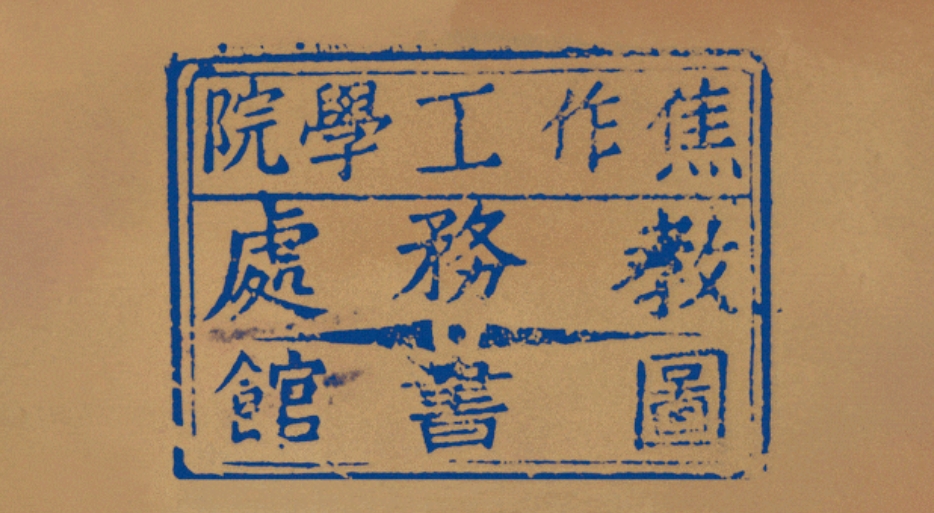 焦作工學院
教務處
圖書館